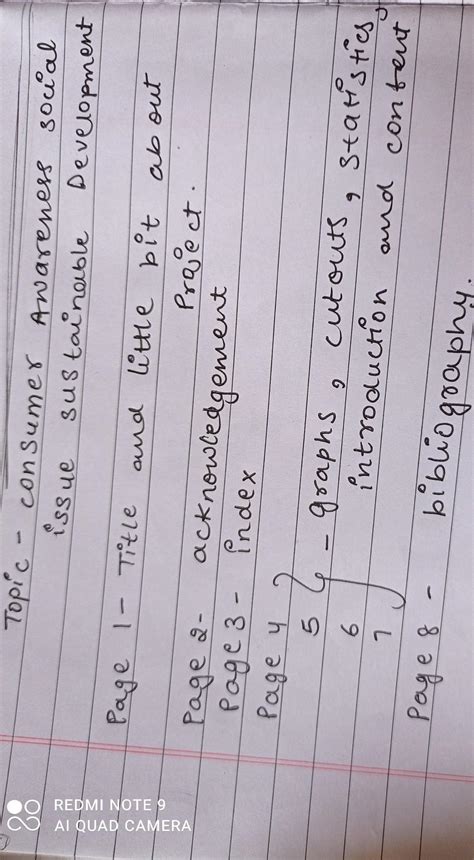 Topic - consumer Awareness social
issue sustainable Development
Page 1 - Title and little bit about
Project.
Page 2 - acknowledgement
Page 3 - index
Page 4
5 } - graphs, cutouts, statistics,
6 introduction and content
7
Page 8 - bibliography.
REDMI NOTE 9
AI QUAD CAMERA